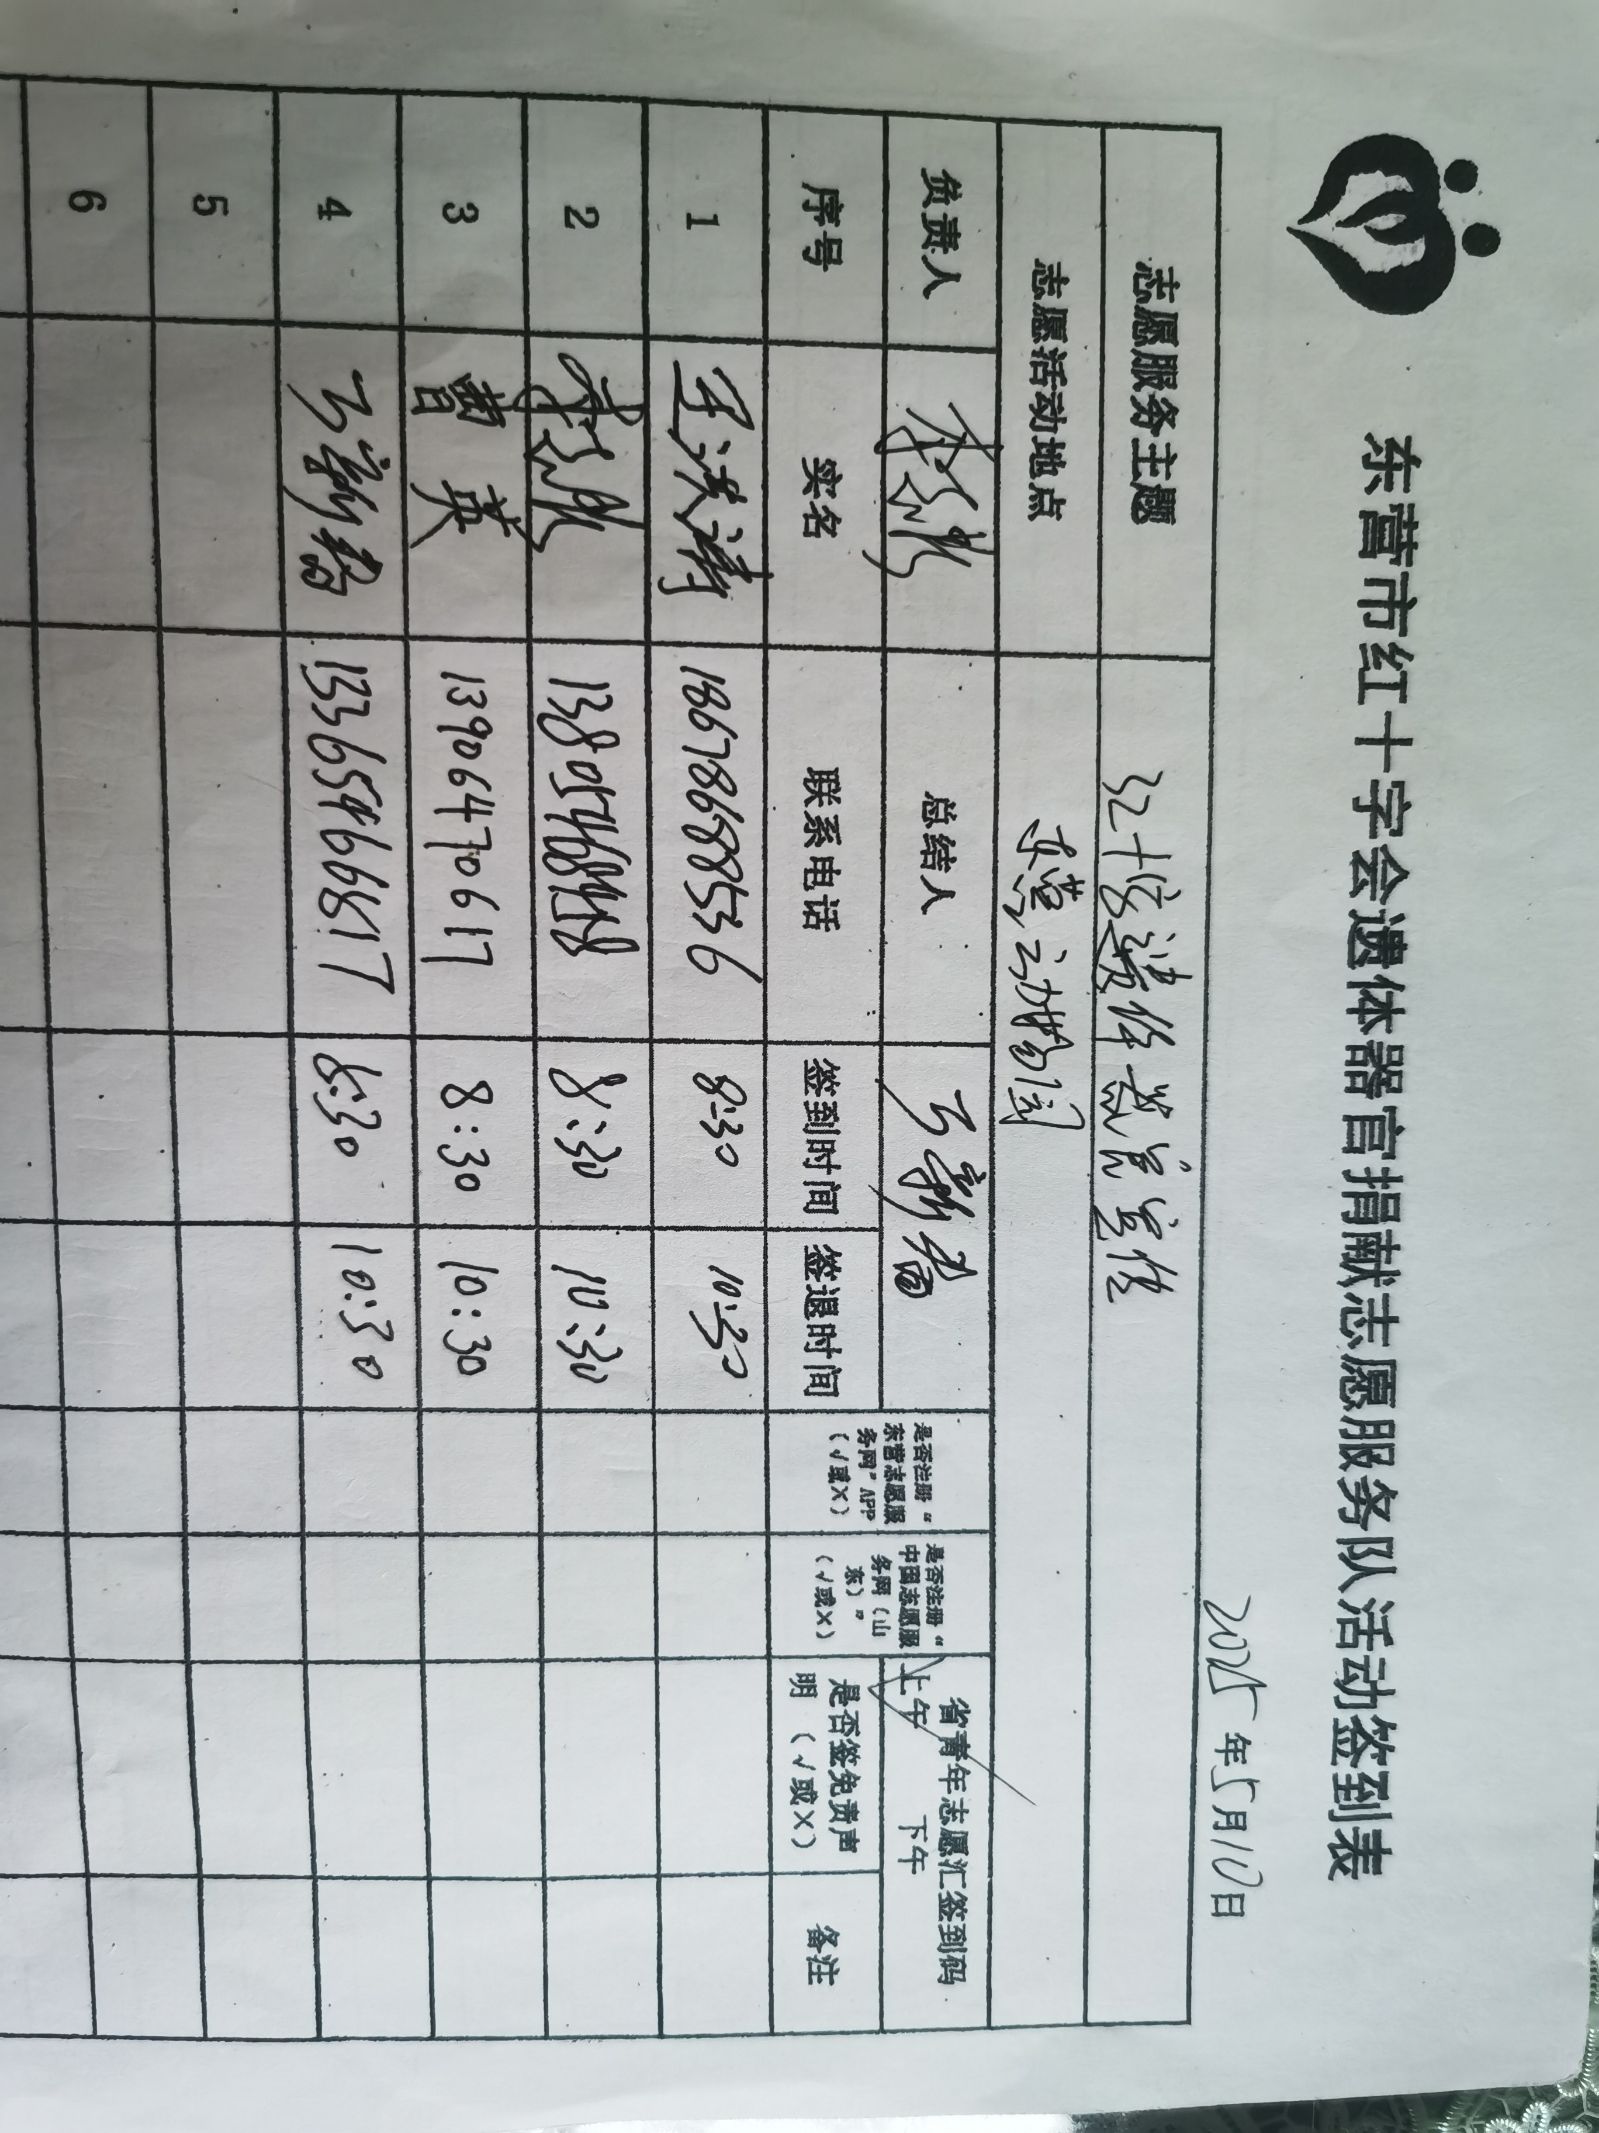 东营市红十字会遗体器官捐献志愿服务队活动签到表
2025年5月10日
志愿服务主题 红十字遗体器官宣传
志愿活动地点 东营动物园
负责人 总结人 省青年志愿汇签到码
上午 下午
序号 实名 联系电话 签到时间 签退时间 是否注册“东营志愿服务网”APP（√或X） 是否注册“中国志愿服务网（山东）”（√或X） 是否签免责声明（√或X） 备注
1 王洪涛 18678688536 8:30 10:30
2 8:30 10:30
3 曹英 13906470617 8:30 10:30
4 13365466817 8:30 10:30
5
6